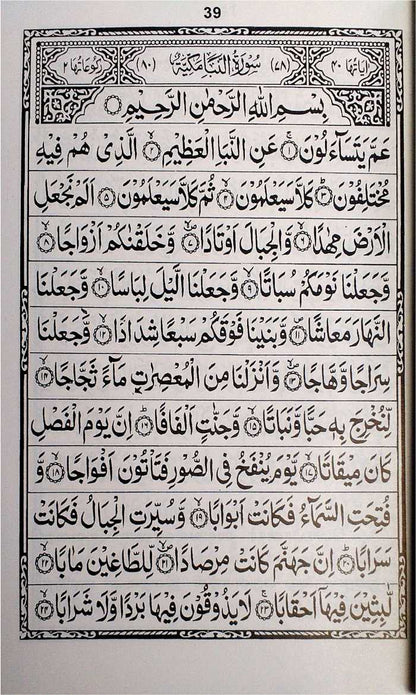 39
اٰیَاتُهَا ۴۰ (۷۸) سُوْرَةُ النَّبَاِ مَكِّيَّةٌ (۸۰) رُكُوْعَاتُهَا ۲
بِسْمِ اللّٰهِ الرَّحْمٰنِ الرَّحِيْمِ
عَمَّ يَتَسَآءَلُوْنَ ۱ عَنِ النَّبَاِ الْعَظِيْمِ ۲ الَّذِيْ هُمْ فِيْهِ
مُخْتَلِفُوْنَ ۳ كَلَّا سَيَعْلَمُوْنَ ۴ ثُمَّ كَلَّا سَيَعْلَمُوْنَ ۵ اَلَمْ نَجْعَلِ
الْاَرْضَ مِهٰدًا ۶ وَّالْجِبَالَ اَوْتَادًا ۷ وَّخَلَقْنٰكُمْ اَزْوَاجًا ۸
وَّجَعَلْنَا نَوْمَكُمْ سُبَاتًا ۹ وَّجَعَلْنَا الَّيْلَ لِبَاسًا ۱۰ وَّجَعَلْنَا
النَّهَارَ مَعَاشًا ۱۱ وَّبَنَيْنَا فَوْقَكُمْ سَبْعًا شِدَادًا ۱۲ وَّجَعَلْنَا
سِرَاجًا وَّهَّاجًا ۱۳ وَّاَنْزَلْنَا مِنَ الْمُعْصِرٰتِ مَآءً ثَجَّاجًا ۱۴
لِّنُخْرِجَ بِهٖ حَبًّا وَّنَبَاتًا ۱۵ وَّجَنّٰتٍ اَلْفَافًا ۱۶ اِنَّ يَوْمَ الْفَصْلِ
كَانَ مِيْقَاتًا ۱۷ يَّوْمَ يُنْفَخُ فِي الصُّوْرِ فَتَاْتُوْنَ اَفْوَاجًا ۱۸ وَّ
فُتِحَتِ السَّمَآءُ فَكَانَتْ اَبْوَابًا ۱۹ وَّسُيِّرَتِ الْجِبَالُ فَكَانَتْ
سَرَابًا ۲۰ اِنَّ جَهَنَّمَ كَانَتْ مِرْصَادًا ۲۱ لِّلطَّاغِيْنَ مَاٰبًا ۲۲
لّٰبِثِيْنَ فِيْهَآ اَحْقَابًا ۲۳ لَا يَذُوْقُوْنَ فِيْهَا بَرْدًا وَّلَا شَرَابًا ۲۴